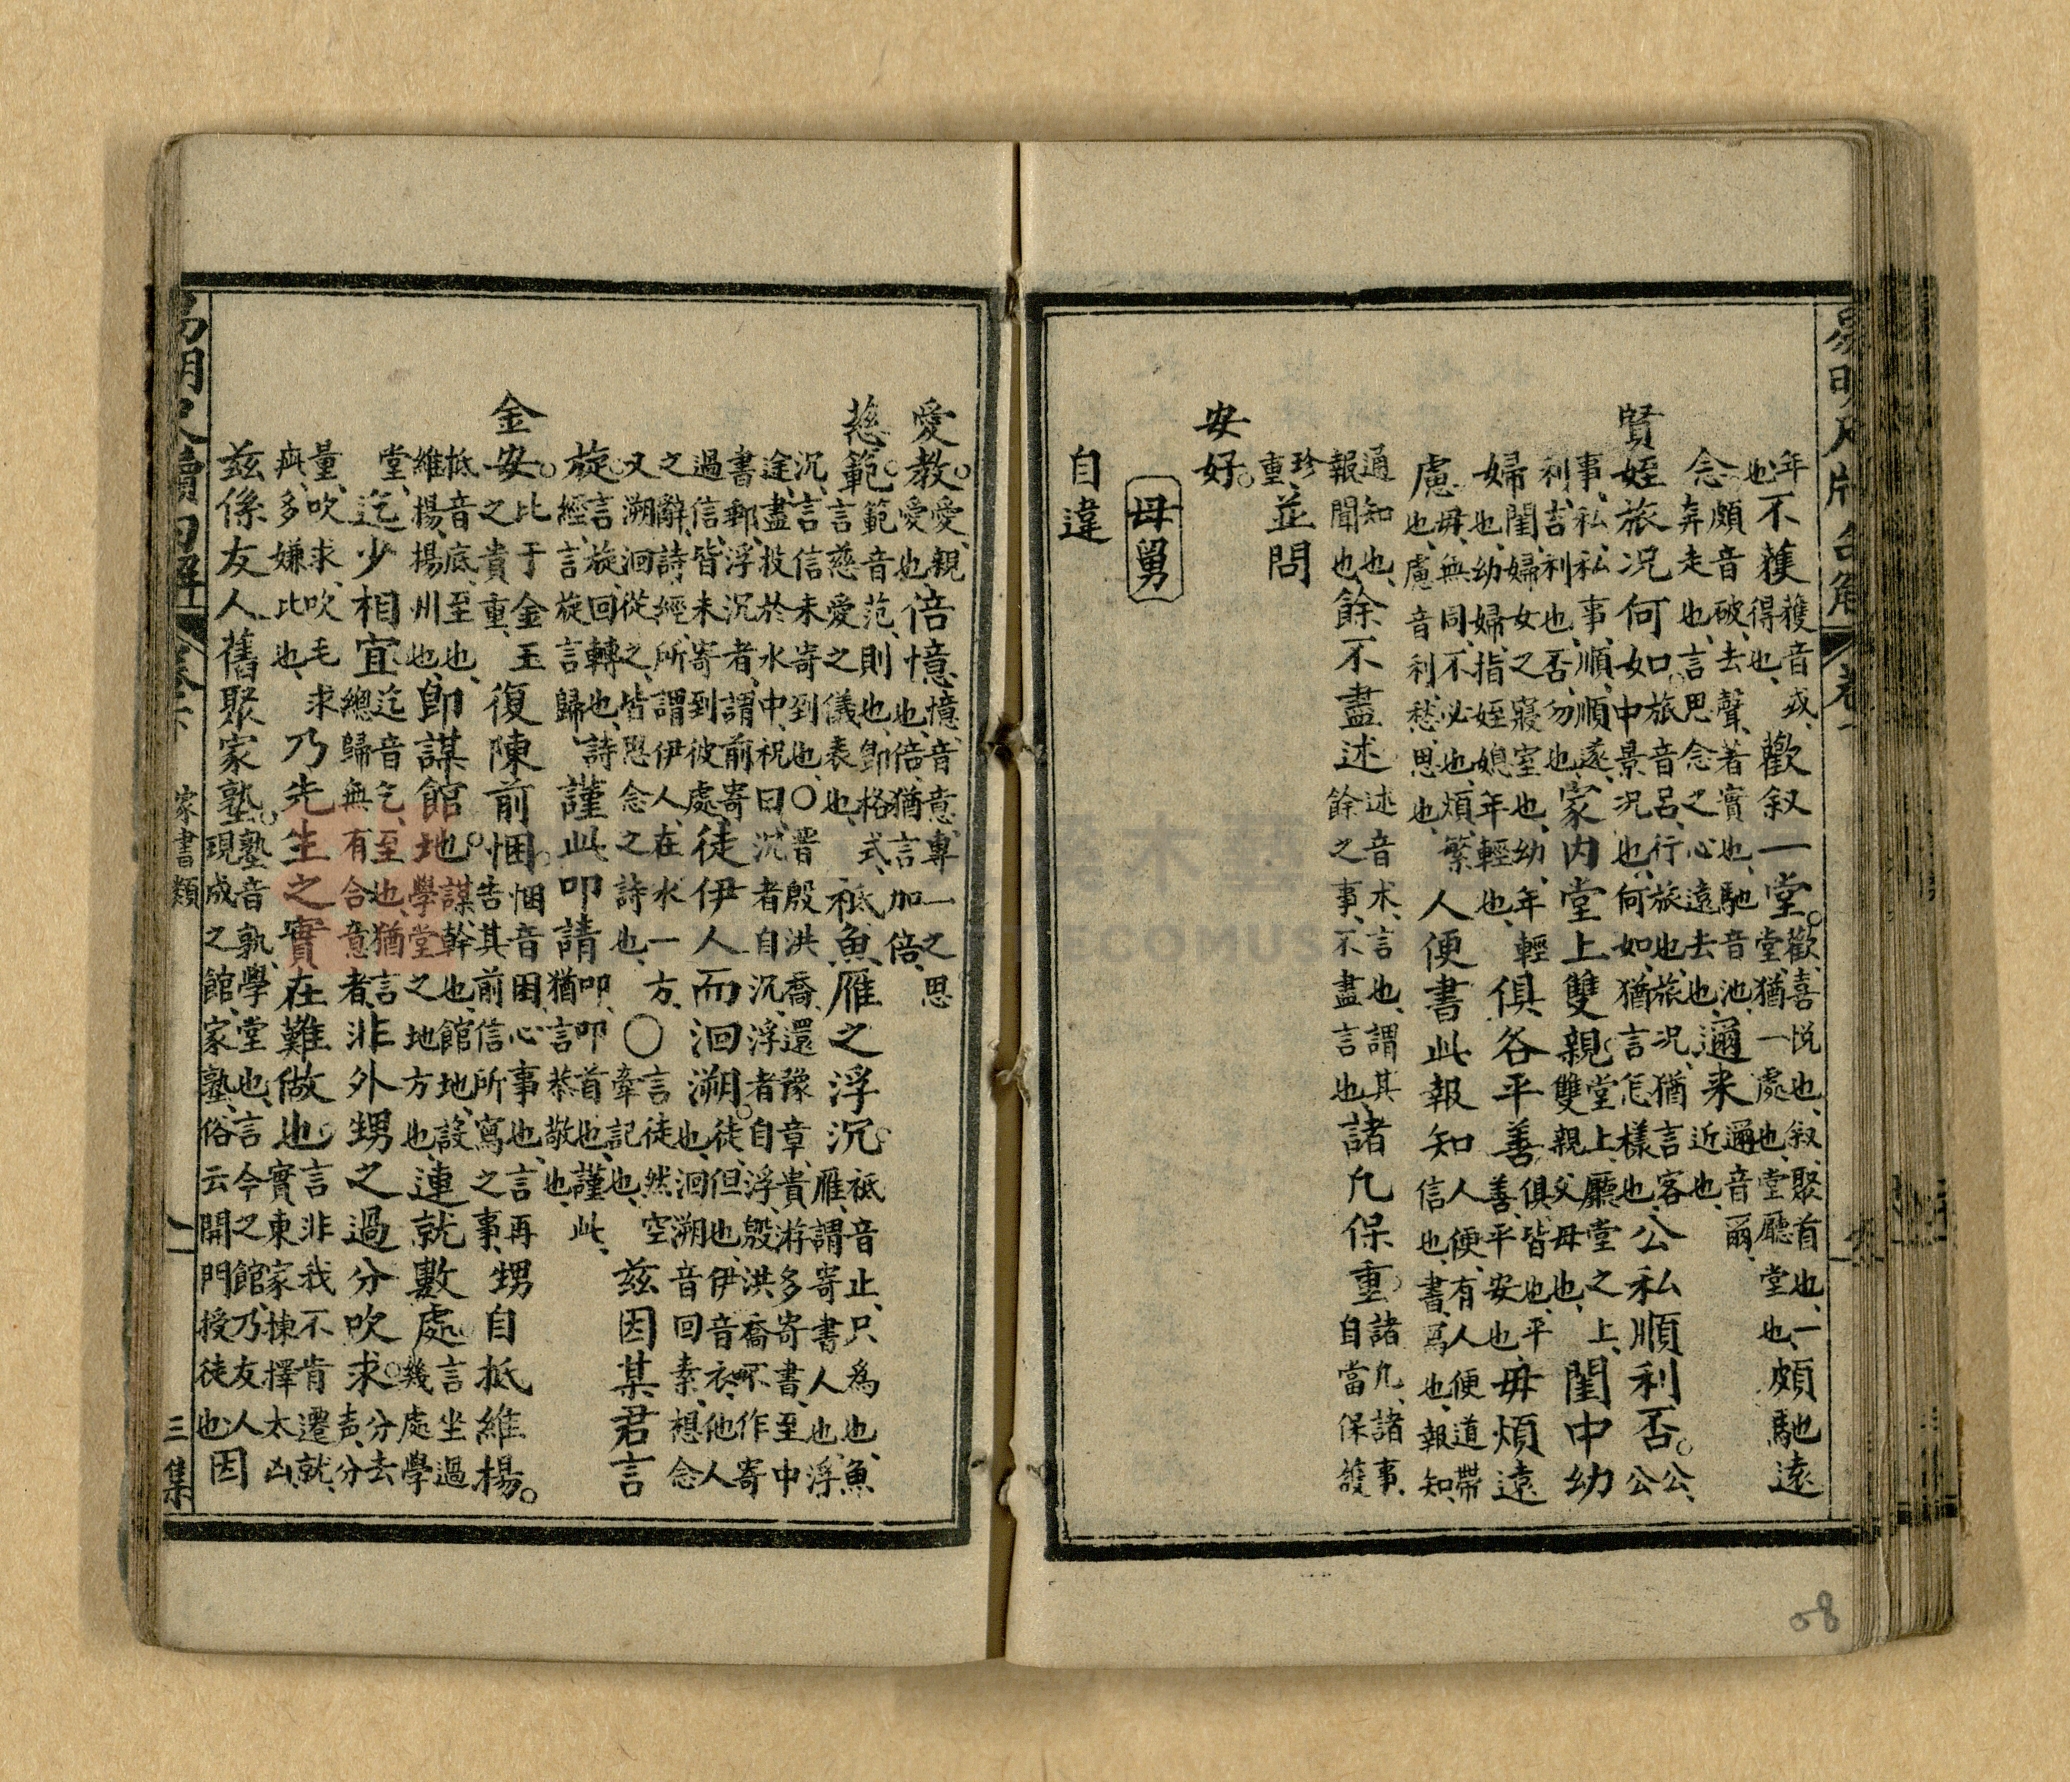 年也不獲獲音或得也歡叙一堂歡喜悦也叙聚首也一堂猶一處也堂廳堂也頗馳遠
念頗音破去聲著實也馳音池弃走也言思念之心遠去也邇来邇音爾近也
賢姪旅况何如旅音呂行旅也旅况猶言客中景况也何如猶言怎樣也公私順利否公公
事私私事順順遂也利吉利也否勿也家内堂上雙親堂上廳堂之上雙親父母也閨中幼
婦閨婦女之寢室也幼年輕也幼婦指姪媳年輕也俱各平善俱皆也平善平安也毋煩遠
慮毋無同不必也煩繁也慮音利愁思也人便書此報知人便有人便道帶信也書寫也報知
通知也報聞也餘不盡述述音术言也謂其餘之事不盡言也諸凡保重諸凡諸事自當保護
珍重並問
安好
母舅
自違
愛教愛親愛也倍憶憶音意專一之思也倍猶言加倍
慈範範音范則也卽格式言慈愛之儀表也祗魚雁之浮沉祗音止只爲也魚雁謂寄書人也浮
沉言信未寄到也〇晋殷洪喬還豫章貴游多寄書至中途盡投於水中祝曰沉者自沉浮者自浮殷洪喬不作寄
書郵浮沉者謂前寄過信皆未寄到彼處徒伊人而洄溯徒但也伊音衣他人也洄溯音回素想念
之辭詩經所謂伊人在水一方〇言徒然空又溯洄從之皆思念之詩也牽記也兹因某君言
旋言旋回轉也詩經言旋言歸謹此叩請叩叩首也謹此猶言恭敬也
金安比于金玉之貴重復陳前悃悃音困心事也言再告其前信所寫之事甥自抵維楊
抵音底至也維楊楊州也卽謀館地謀幹也館地設學堂之地方也連就數處言坐過幾處學
堂迄少相宜迄音乞至也猶言總歸無有合意者非外甥之過分吹求分去声分
量吹求吹毛求疵多嫌比也乃先生之實在難做也言非我不肯遷就實東家揀擇太凶
兹係友人舊聚家塾塾音孰學堂也言今之館乃友人現成之館家塾俗云開門授徒也因
家書類
三集
08